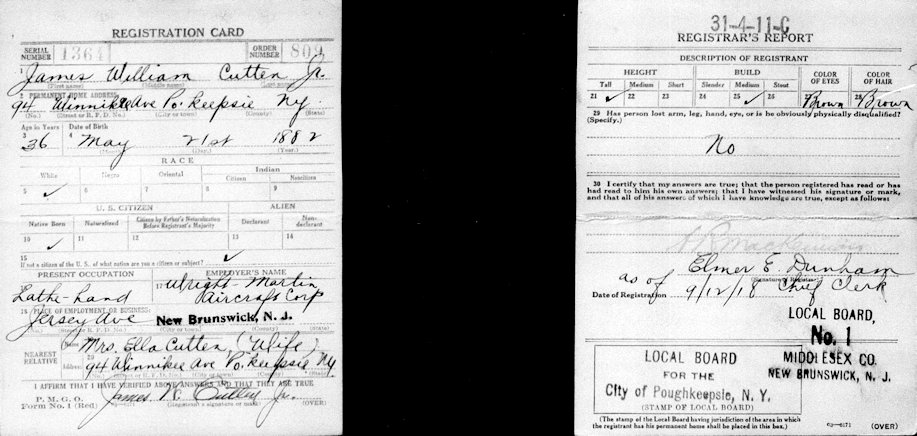 REGISTRATION CARD
SERIAL NUMBER 1364 ORDER NUMBER 809
1 James William Cutten Jr.
(First name) (Middle name) (Last name)
2 PERMANENT HOME ADDRESS:
94 Winnikee Ave Po'keepsie NY.
(No.) (Street or R. F. D. No.) (City or town) (County) (State)
Age in Years Date of Birth
3 36 4 May 21st 1882
(Month.) (Day.) (Year.)
RACE
White Negro Oriental Indian
Citizen Noncitizen
5 ✓ 6 7 8 9
U. S. CITIZEN ALIEN
Native Born Naturalized Citizen by Father's Naturalization Before Registrant's Majority Declarant Non-declarant
10 ✓ 11 12 13 14
15 ✓
If not a citizen of the U. S., of what nation are you a citizen or subject?
PRESENT OCCUPATION EMPLOYER'S NAME
16 Lathe-hand 17 Wright-Martin Aircraft Corp
18 PLACE OF EMPLOYMENT OR BUSINESS:
Jersey Ave New Brunswick, N. J.
(No.) (Street or R. F. D. No.) (City or town) (County) (State)
NEAREST RELATIVE
Name 19 Mrs. Ella Cutten, (Wife)
Address 20 94 Winnikee Ave Po'keepsie NY
(No.) (Street or R. F. D. No.) (City or town) (County) (State)
I AFFIRM THAT I HAVE VERIFIED ABOVE ANSWERS AND THAT THEY ARE TRUE
P. M. G. O.
Form No. 1 (Red) 03—6171 James W. Cutten Jr.
(Registrant's signature or mark) (OVER)
31-4-11-C
REGISTRAR'S REPORT
DESCRIPTION OF REGISTRANT
HEIGHT BUILD COLOR OF EYES COLOR OF HAIR
Tall Medium Short Slender Medium Stout
21 ✓ 22 23 24 25 ✓ 26 27 Brown 28 Brown
29 Has person lost arm, leg, hand, eye, or is he obviously physically disqualified?
(Specify.)
No
30 I certify that my answers are true; that the person registered has read or has
had read to him his own answers; that I have witnessed his signature or mark,
and that all of his answers of which I have knowledge are true, except as follows:
Elmer E. Dunham
(Signature of Registrar)
as of Chief Clerk
Date of Registration 9/12/18
LOCAL BOARD,
No. 1
MIDDLESEX CO.
NEW BRUNSWICK, N. J.
LOCAL BOARD
FOR THE
City of Poughkeepsie, N. Y.
(STAMP OF LOCAL BOARD)
(The stamp of the Local Board having jurisdiction of the area in which
the registrant has his permanent home shall be placed in this box.)
03—6171 (OVER)